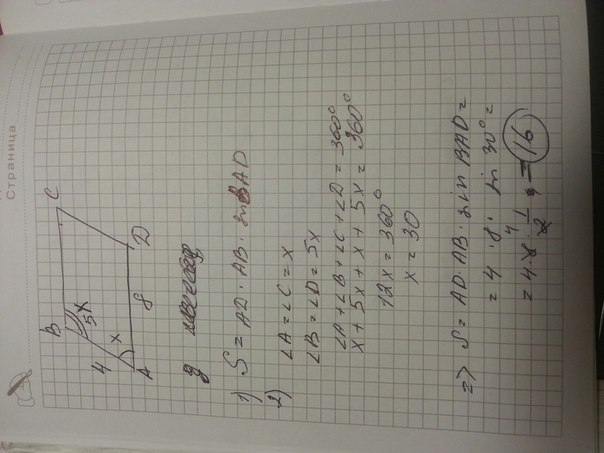 Страница
B
C
5x
4
x
A
8
D
1) S = AD · AB · sin BAD
2) ∠A = ∠C = x
∠B = ∠D = 5x
∠A + ∠B + ∠C + ∠D = 360°
x + 5x + x + 5x = 360°
12x = 360°
x = 30
=> S = AD · AB · sin BAD =
= 4 · 8 · sin 30° =
= 4 · 8 · 1/2 = 16
4